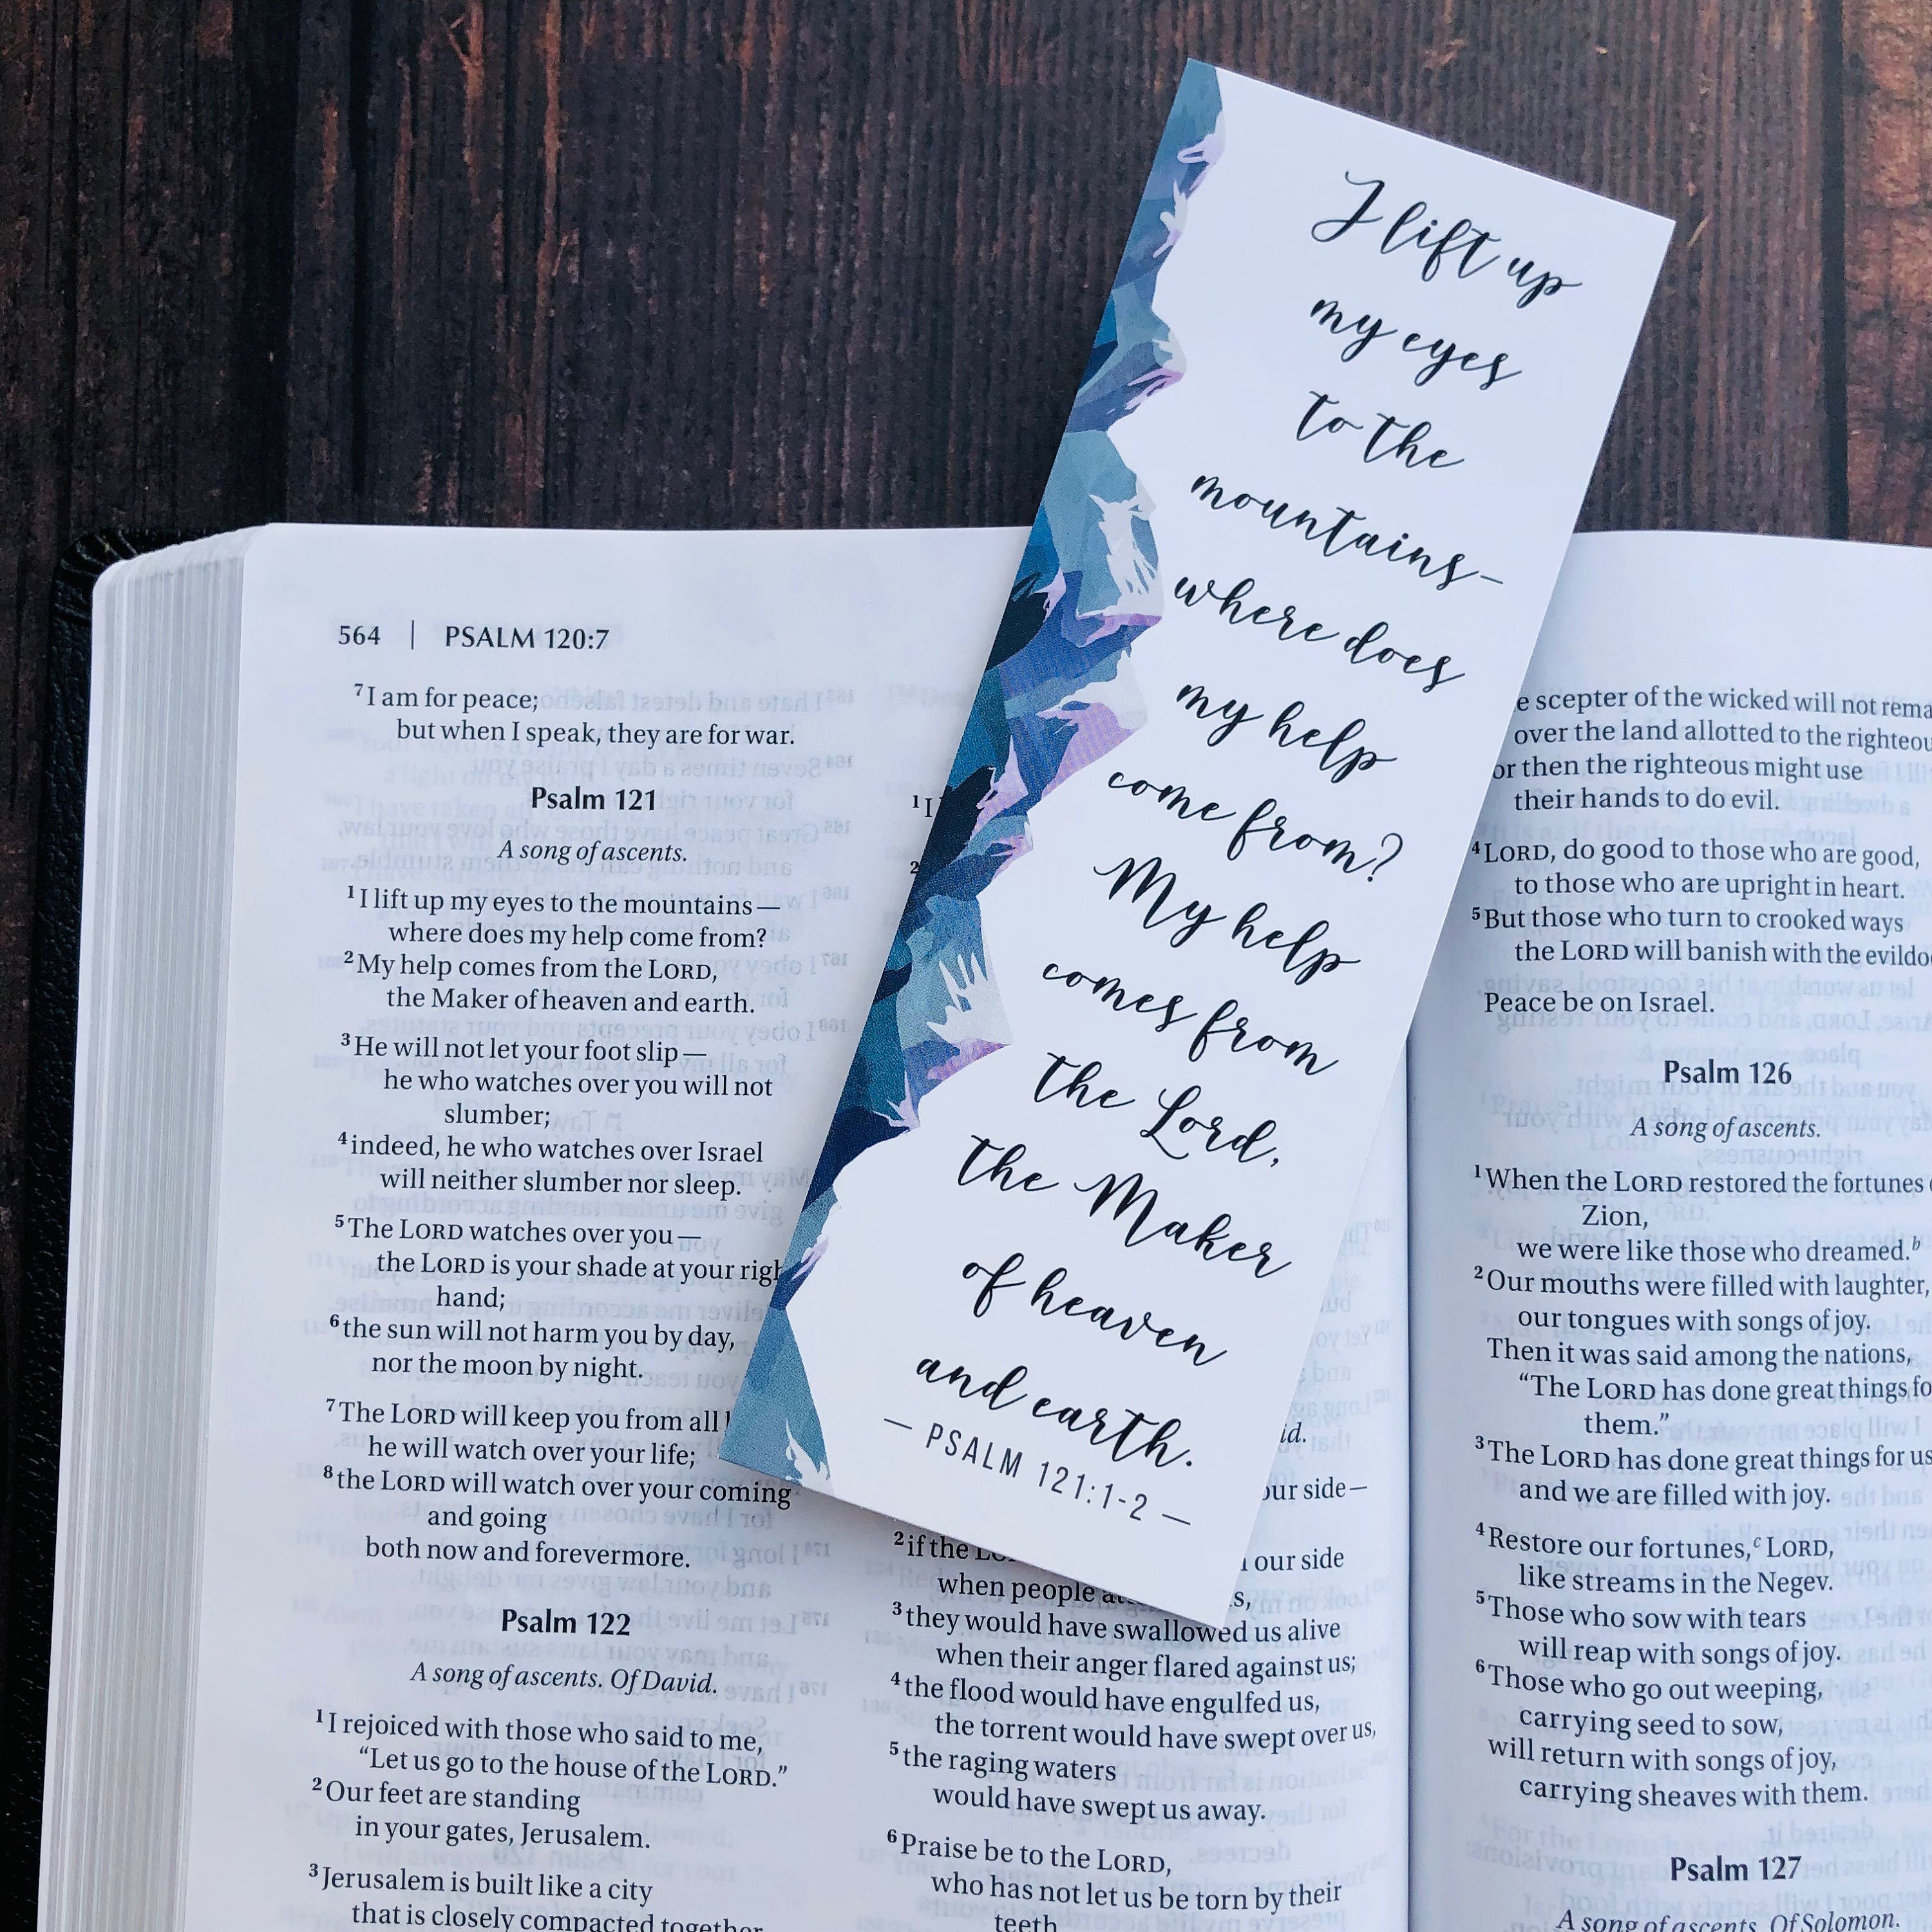 I lift up
my eyes
to the
mountains-
where does
my help
come from?
My help
comes from
the Lord,
the Maker
of heaven
and earth.
— PSALM 121:1-2 —
564 | PSALM 120:7
7 I am for peace;
but when I speak, they are for war.
Psalm 121
A song of ascents.
1 I lift up my eyes to the mountains —
where does my help come from?
2 My help comes from the LORD,
the Maker of heaven and earth.
3 He will not let your foot slip —
he who watches over you will not
slumber;
4 indeed, he who watches over Israel
will neither slumber nor sleep.
5 The LORD watches over you —
the LORD is your shade at your
hand;
6 the sun will not harm you by day,
nor the moon by night.
7 The LORD will keep you from all
he will watch over your life;
8 the LORD will watch over your coming
and going
both now and forevermore.
Psalm 122
A song of ascents. Of David.
1 I rejoiced with those who said to me,
“Let us go to the house of the LORD.”
2 Our feet are standing
in your gates, Jerusalem.
3 Jerusalem is built like a city
that is closely compacted together
1 I
2
our side—
2 if the
our side
when people
3 they would have swallowed us alive
when their anger flared against us;
4 the flood would have engulfed us,
the torrent would have swept over us,
5 the raging waters
would have swept us away.
6 Praise be to the LORD,
who has not let us be torn by their
teeth
scepter of the wicked will not
over the land allotted to the
then the righteous might use
their hands to do evil.
4 LORD, do good to those who are good,
to those who are upright in heart.
5 But those who turn to crooked ways
the LORD will banish with the
Peace be on Israel.
Psalm 126
A song of ascents.
1 When the LORD restored the fortunes
Zion,
we were like those who dreamed.b
2 Our mouths were filled with laughter,
our tongues with songs of joy.
Then it was said among the nations,
“The LORD has done great things
them.”
3 The LORD has done great things for us
and we are filled with joy.
4 Restore our fortunes,c LORD,
like streams in the Negev.
5 Those who sow with tears
will reap with songs of joy.
6 Those who go out weeping,
carrying seed to sow,
will return with songs of joy,
carrying sheaves with them.
Psalm 127
A song of ascents. Of Solomon.